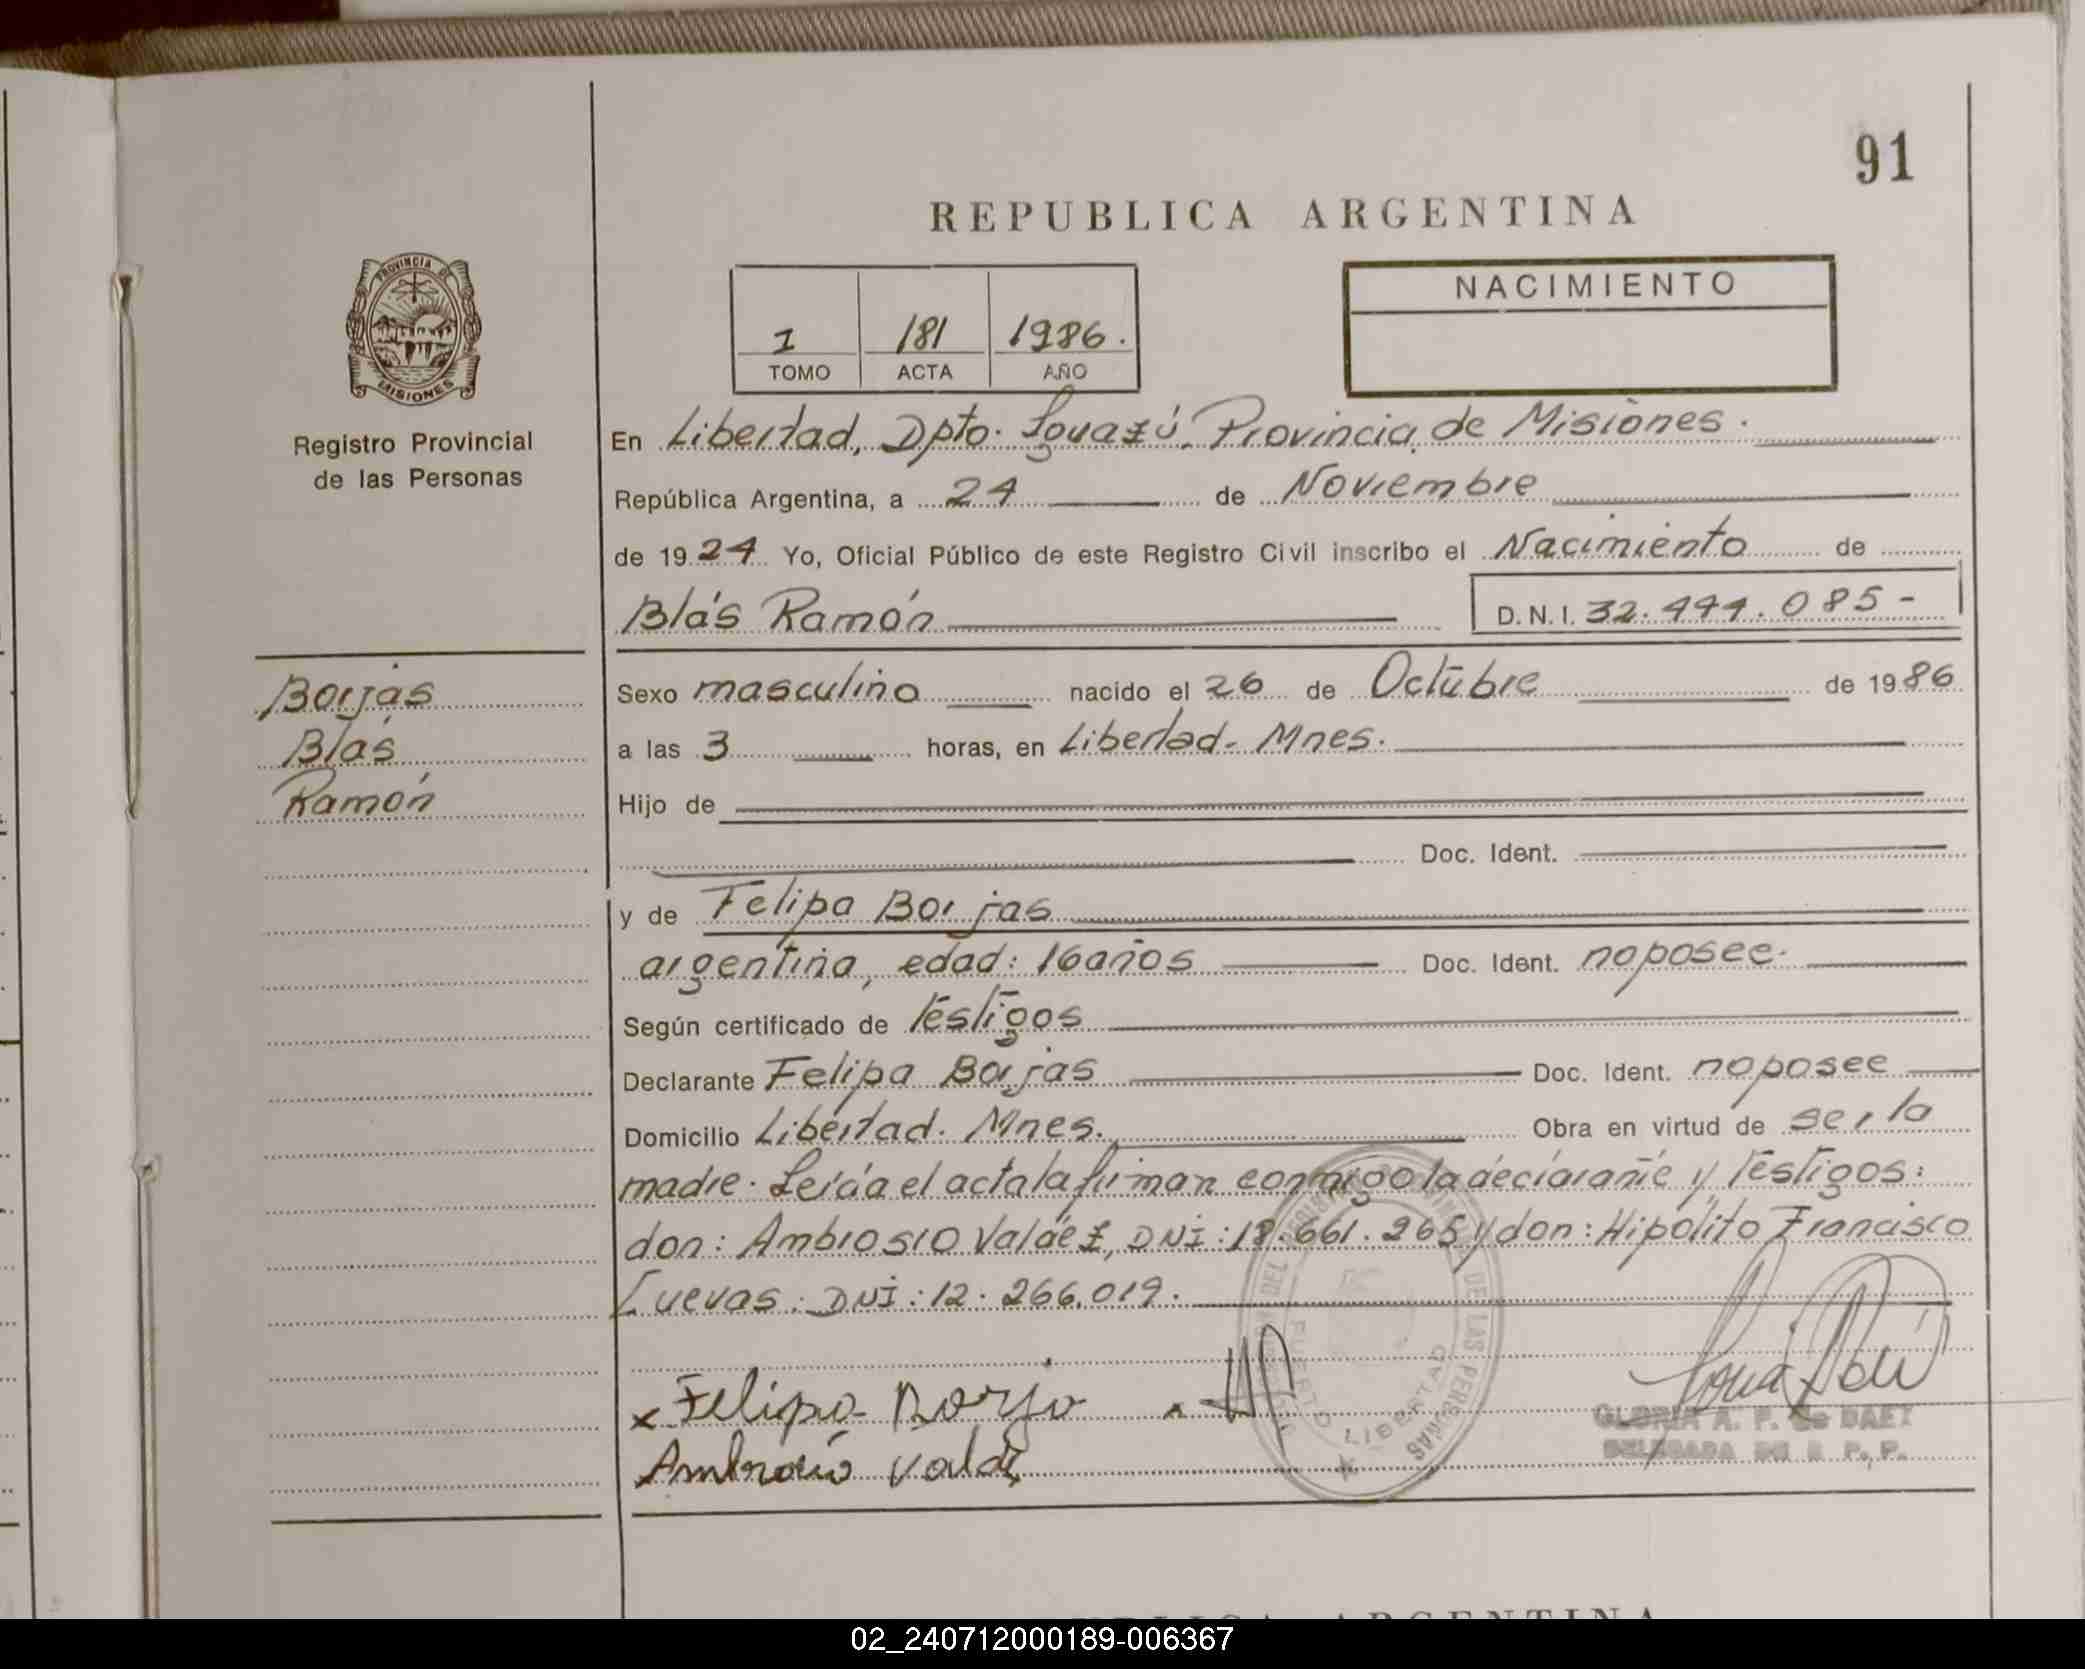 91
REPUBLICA ARGENTINA
PROVINCIA DE
MISIONES
Registro Provincial
de las Personas
1 181 1986.
TOMO ACTA AÑO
NACIMIENTO
En Libertad, Dpto. Iguazú, Provincia de Misiones.
República Argentina, a 24 de Noviembre
de 1924 Yo, Oficial Público de este Registro Civil inscribo el Nacimiento de
Blás Ramón D.N.I. 32.444.085-
Borjas
Blás
Ramón
Sexo masculino nacido el 26 de Octubre de 1986
a las 3 horas, en Libertad - Mnes.
Hijo de
Doc. Ident.
y de Felipa Borjas
argentina, edad: 16 años Doc. Ident. no posee.
Según certificado de Testigos
Declarante Felipa Borjas Doc. Ident. no posee
Domicilio Libertad. Mnes. Obra en virtud de ser la
madre. Leída el acta la firman conmigo la declarante y Testigos:
don: Ambrosio Valdez, DNI: 18.661.265 y don: Hipólito Francisco
Cuevas. DNI: 12.266.019.
x Felipa Borja
Ambrosio Valdez
PUERTO LIBERTAD
DE LAS PERSONAS
GLORIA A. F. de BAEZ
DELEGADA DE R. P. P.
REPUBLICA ARGENTINA
02_240712000189-006367